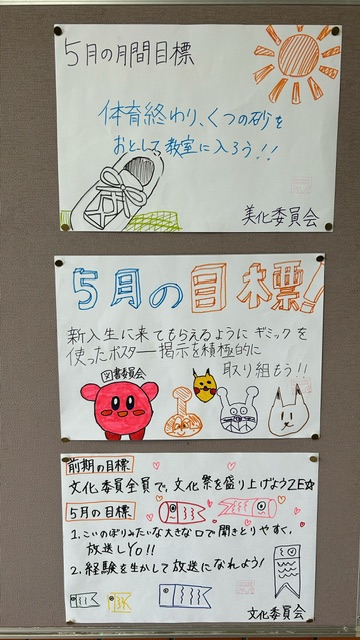 5月の月間目標
体育終わり、くつの砂を
おとして教室に入ろう!!
美化委員会
5月の目標!
新入生に来てもらえるように ギミックを
使ったポスター掲示を積極的に
取り組もう!!
図書委員会
前期の目標
文化委員全員で、文化祭を盛り上げようZE☆
5月の目標
1.こいのぼりみたいな大きな口で聞きとりやすく、
放送しYO!!
2.経験を生かして放送になれよう!
文化委員会